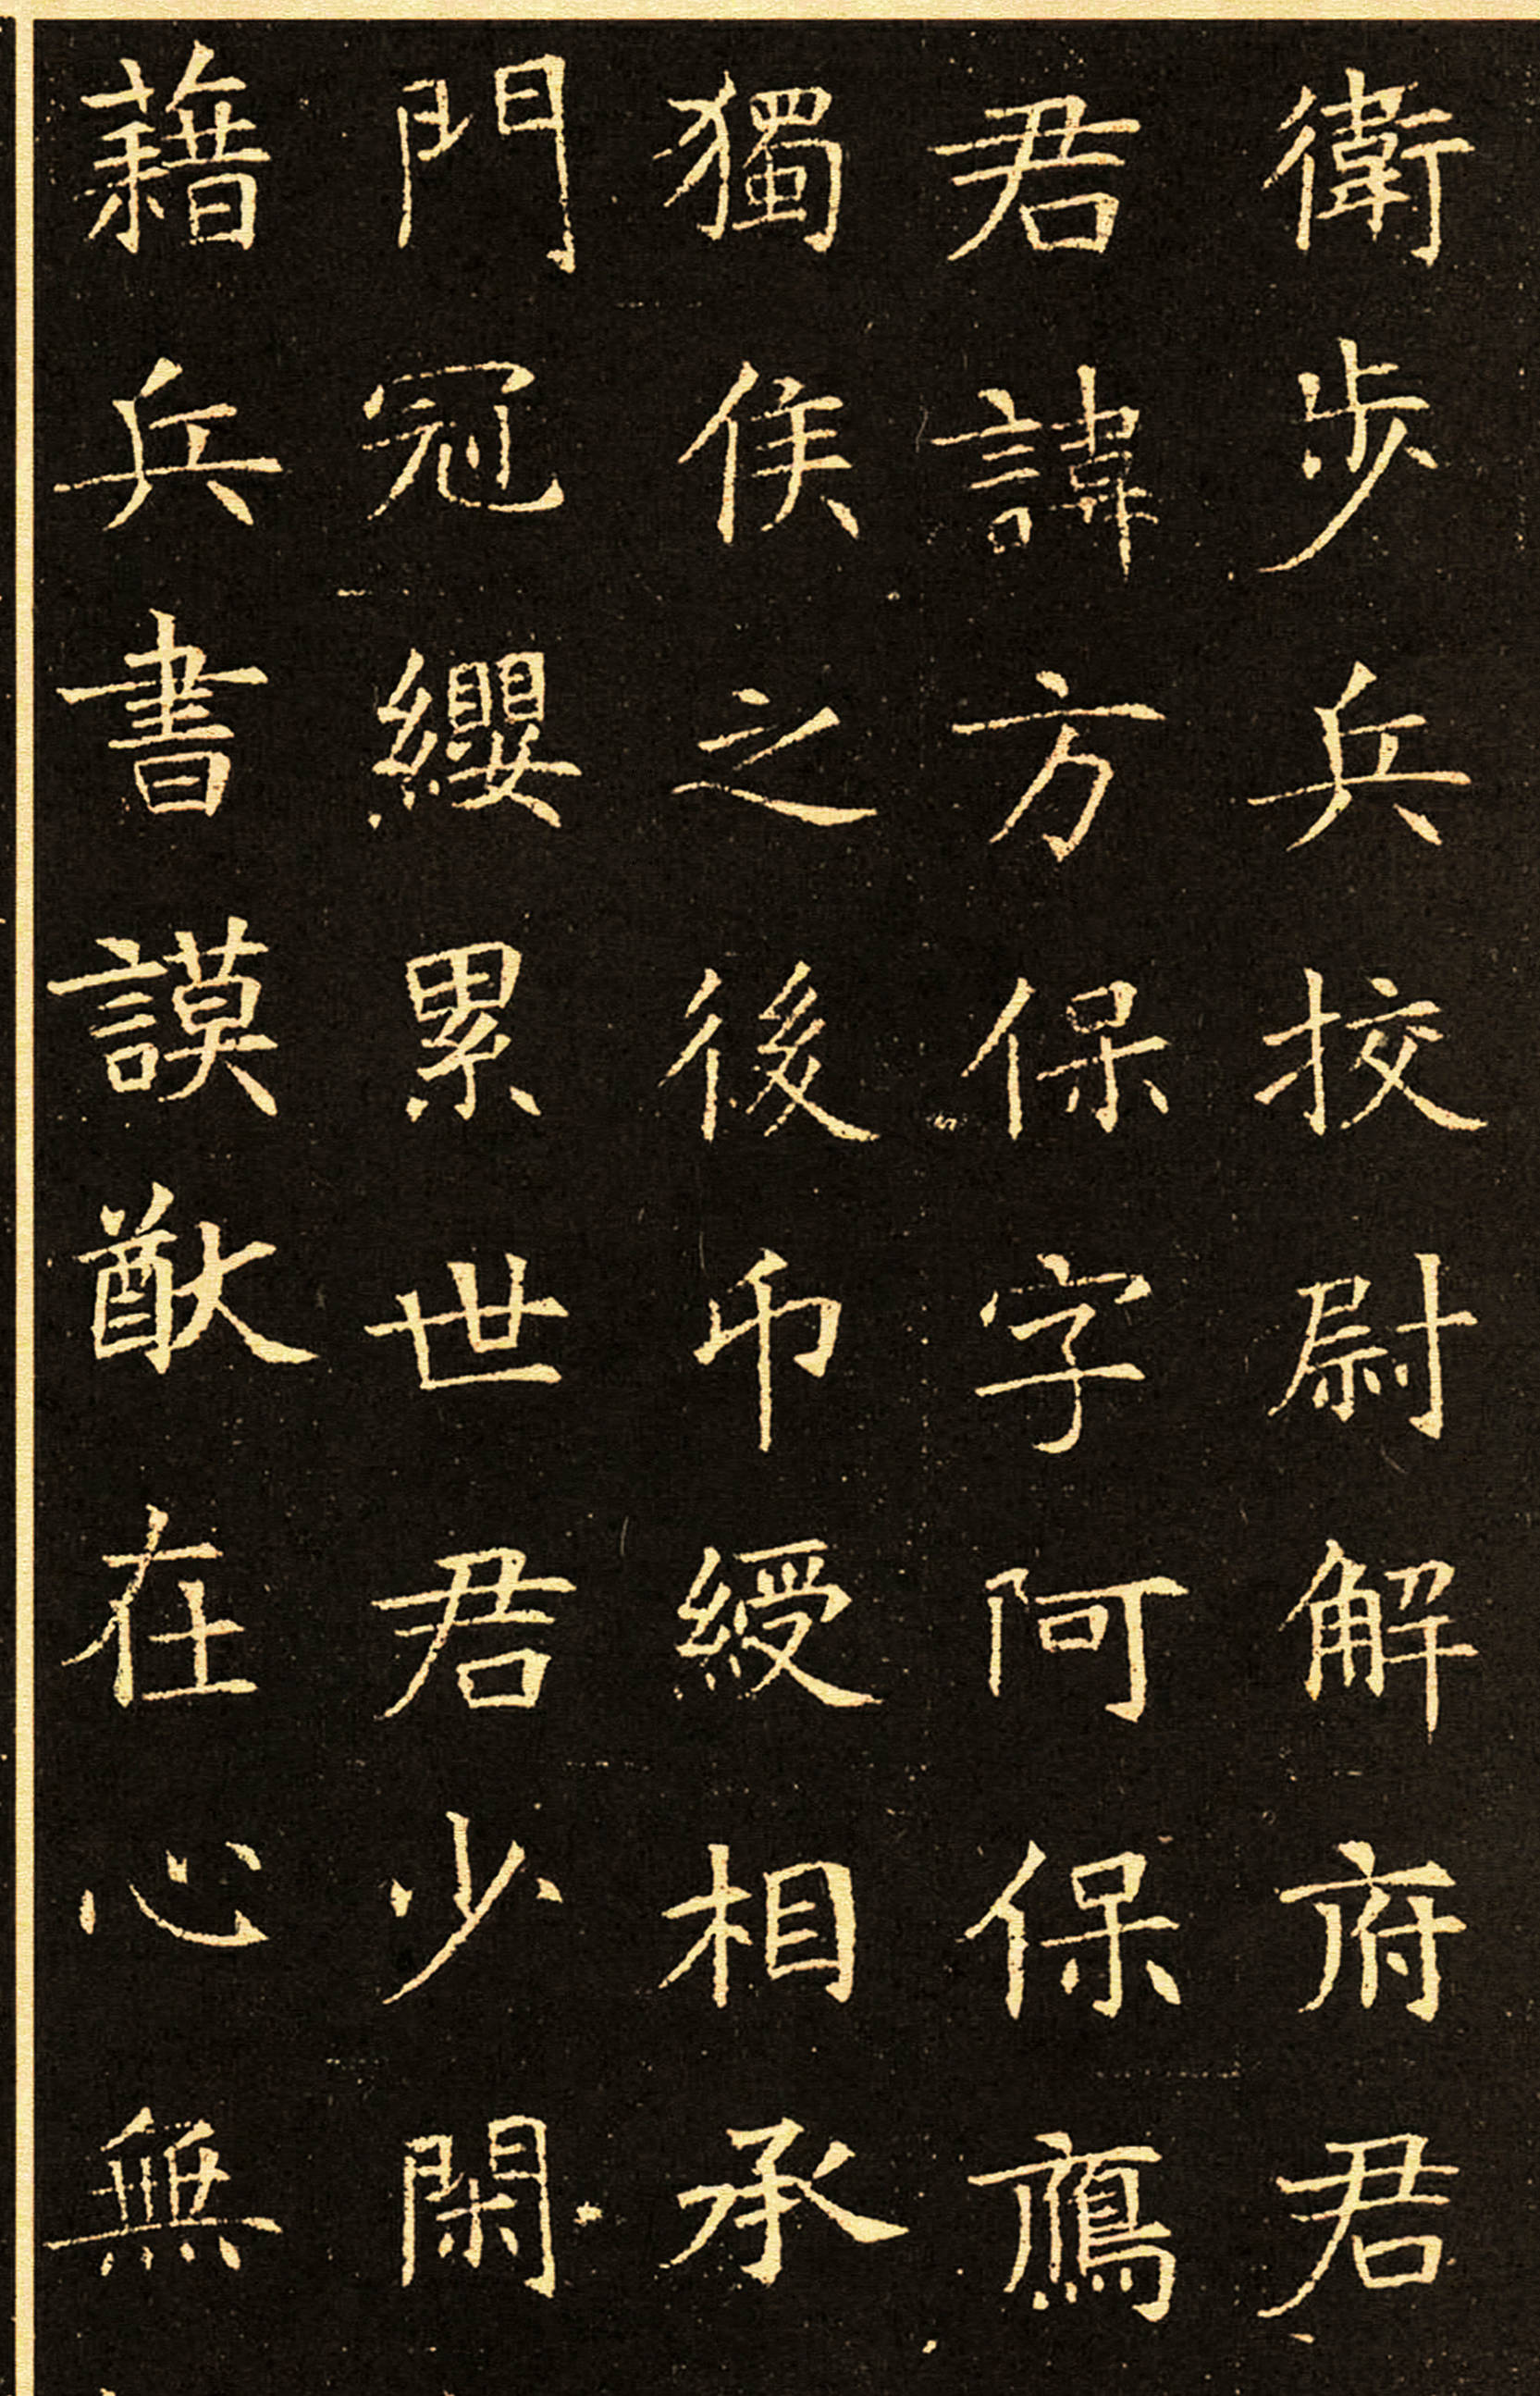 衛步兵挍尉解府君
君諱方保字阿保鴈
獨侯之後印綬相承
門冠纓累世君少閑
藉兵書謨猷在心無